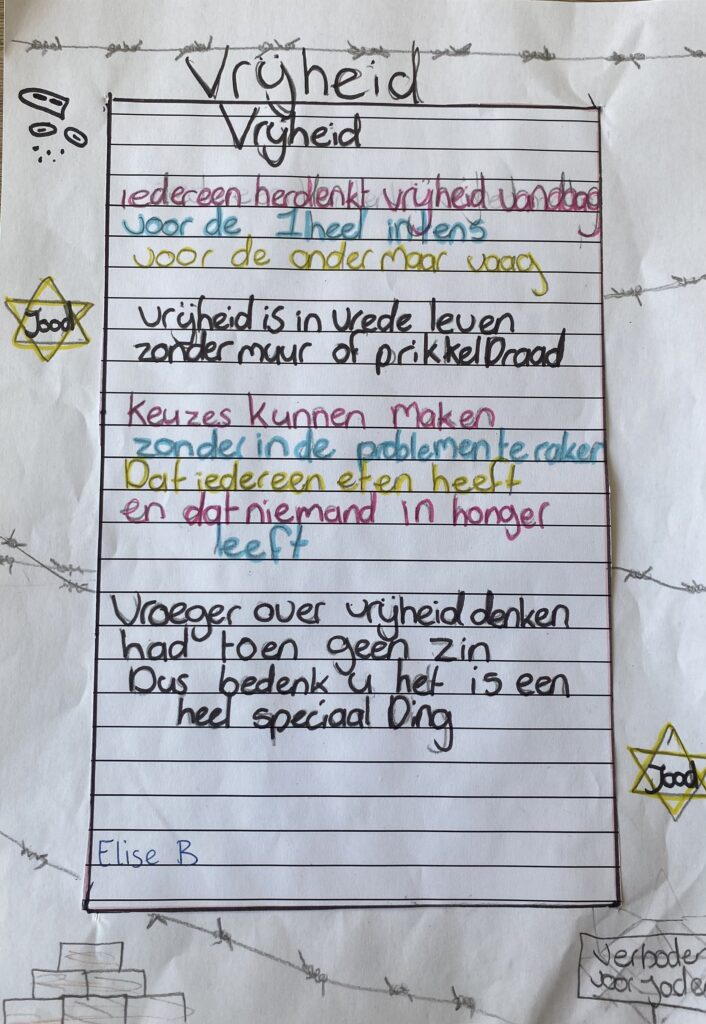 Vrijheid
Vrijheid
iedereen herdenkt vrijheid vandaag
voor de 1 heel intens
voor de onder maar vaag
Jood
vrijheid is in vrede leven
zonder muur of prikkelDraad
Keuzes kunnen maken
zonder in de problemen te raken
Dat iedereen eten heeft
en dat niemand in honger
leeft
Vroeger over vrijheid denken
had toen geen zin
Dus bedenk u het is een
heel speciaal Ding
Jood
Elise B
Verboden
voor Joden